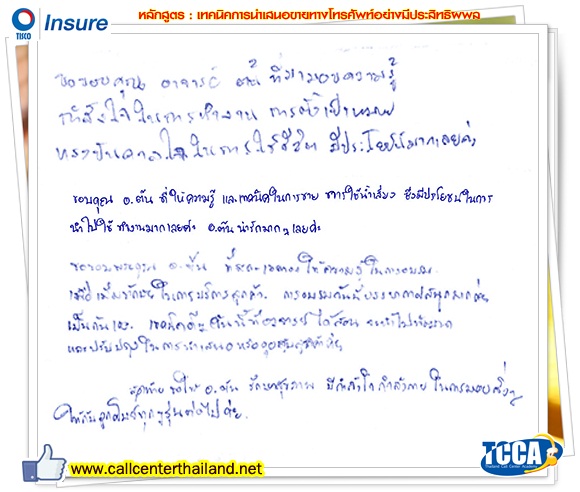 TISCO
Insure
หลักสูตร : เทคนิคการนำเสนอขายทางโทรศัพท์อย่างมีประสิทธิผล
ขอขอบคุณ อาจารย์ ที่มามอบความรู้
ในการทำงาน การตั้งเป้าหมาย
ในการใช้ชีวิต มีประโยชน์มากเลยค่ะ
ขอบคุณ อ.ตัน ที่ให้ความรู้ และเทคนิคในการขาย การใช้น้ำเสียง ซึ่งมีประโยชน์ในการ
นำไปใช้ ทำงานมากเลยค่ะ อ.ตัน น่ารักมาก ๆ เลยค่ะ
ขอขอบพระคุณ อ.ตัน ที่สละเวลามาให้ความรู้ในการอบรม
เพิ่มทักษะในการบริการลูกค้า. การอบรมบรรยากาศสนุกมากค่ะ
เป็นกันเอง. เทคนิคดีๆ วันนี้ที่อาจารย์ได้สอน จะนำไป
และปรับปรุงในการนำเสนอ
สุดท้าย ขอให้ อ.ตัน รักษาสุขภาพ มีกำลังใจ กำลังกาย ในการมอบสิ่งๆ
ให้กับลูกศิษย์ทุกๆรุ่นต่อไปค่ะ.
www.callcenterthailand.net
TCCA
Thailand Call Center Academy